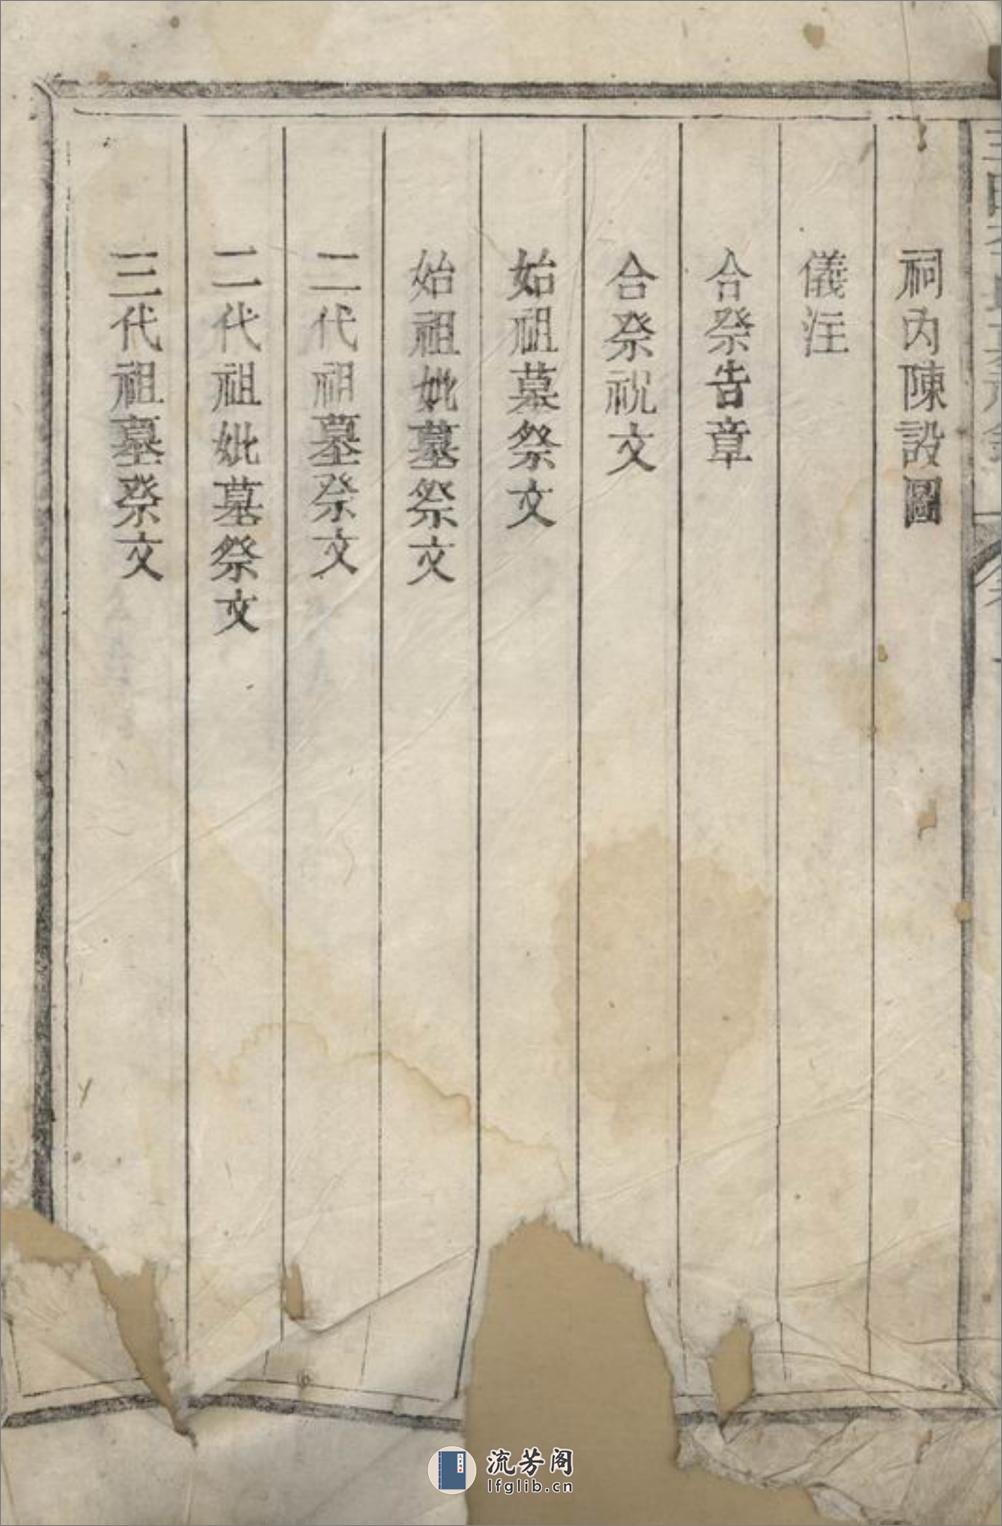 祠內陳設圖
儀注
合祭告章
合祭祝文
始祖墓祭文
始祖妣墓祭文
二代祖墓祭文
二代祖妣墓祭文
三代祖墓祭文
流芳阁
lfglib.cn